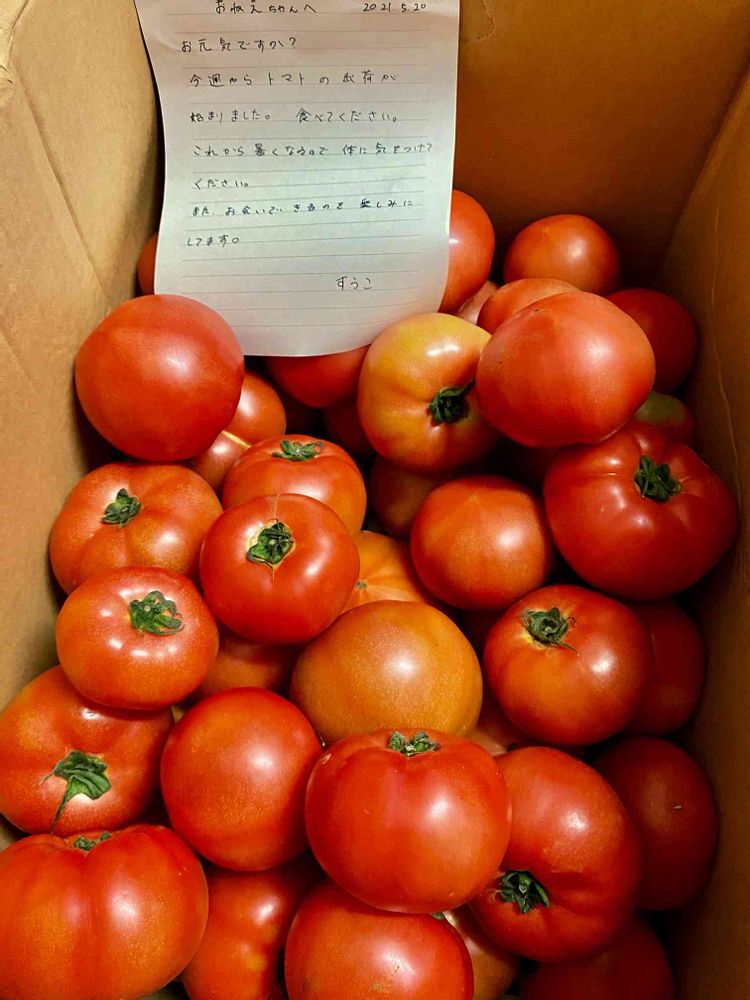 おねえちゃんへ 2021.5.20
お元気ですか?
今週からトマトの出荷が
始まりました。 食べてください。
これから暑くなるので 体に気をつけて
ください。
また、お会いできるのを 楽しみに
してます。
すうこ